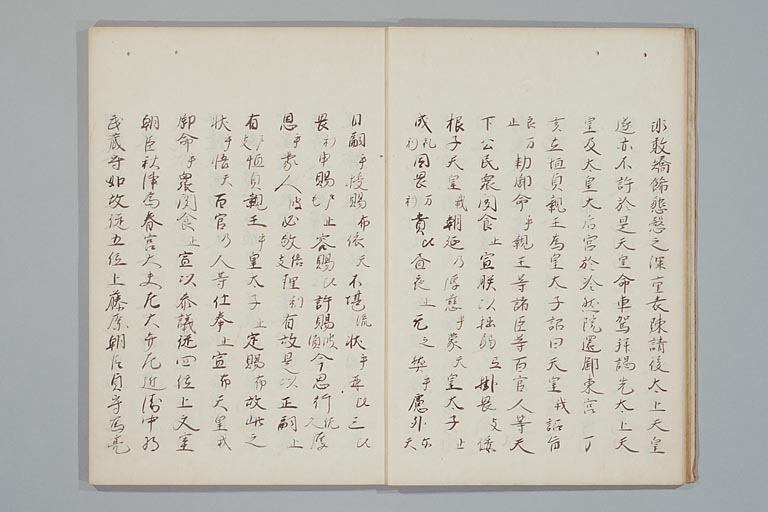 不敢矯餝慇懃之深重表陳請後太上天皇
遂亦不許於是天皇命車駕拝謁先太上天
皇及太皇太后宮於冷然院還御東宮丁
亥立恒貞親王為皇太子詔曰天皇我詔旨
良万止勅御命乎親王等諸臣等百官人等天
下公民衆聞食止宣朕以拙弱弖掛畏支倭
根子天皇我朝廷乃厚慈乎蒙天皇太子止
成礼利因畏万利貴以昼夜止元之勞乎慮外尓天
日嗣乎授賜布依天不堪流状乎再以三以
畏利申賜戸止毛容賜以許賜波須今思行久厚
恩乎蒙人波必敬倍支理利有故是以正嗣止
有戸支恒貞親王乎皇太子止定賜布故此之
状乎悟天百官乃人等仕奉止宣布天皇我
御命乎衆聞食止宣以参議従四位上文室
朝臣秋津為春宮大夫左大弁左近衛中将
武蔵守如故従五位上藤原朝臣貞守為亮